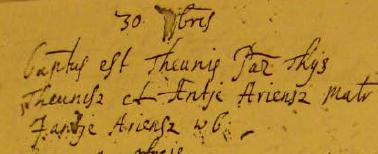 30 bris
Baptus est Theunis Par Thÿs
Theunisz et Antje Ariensz matr
Jantje Ariensz wb.